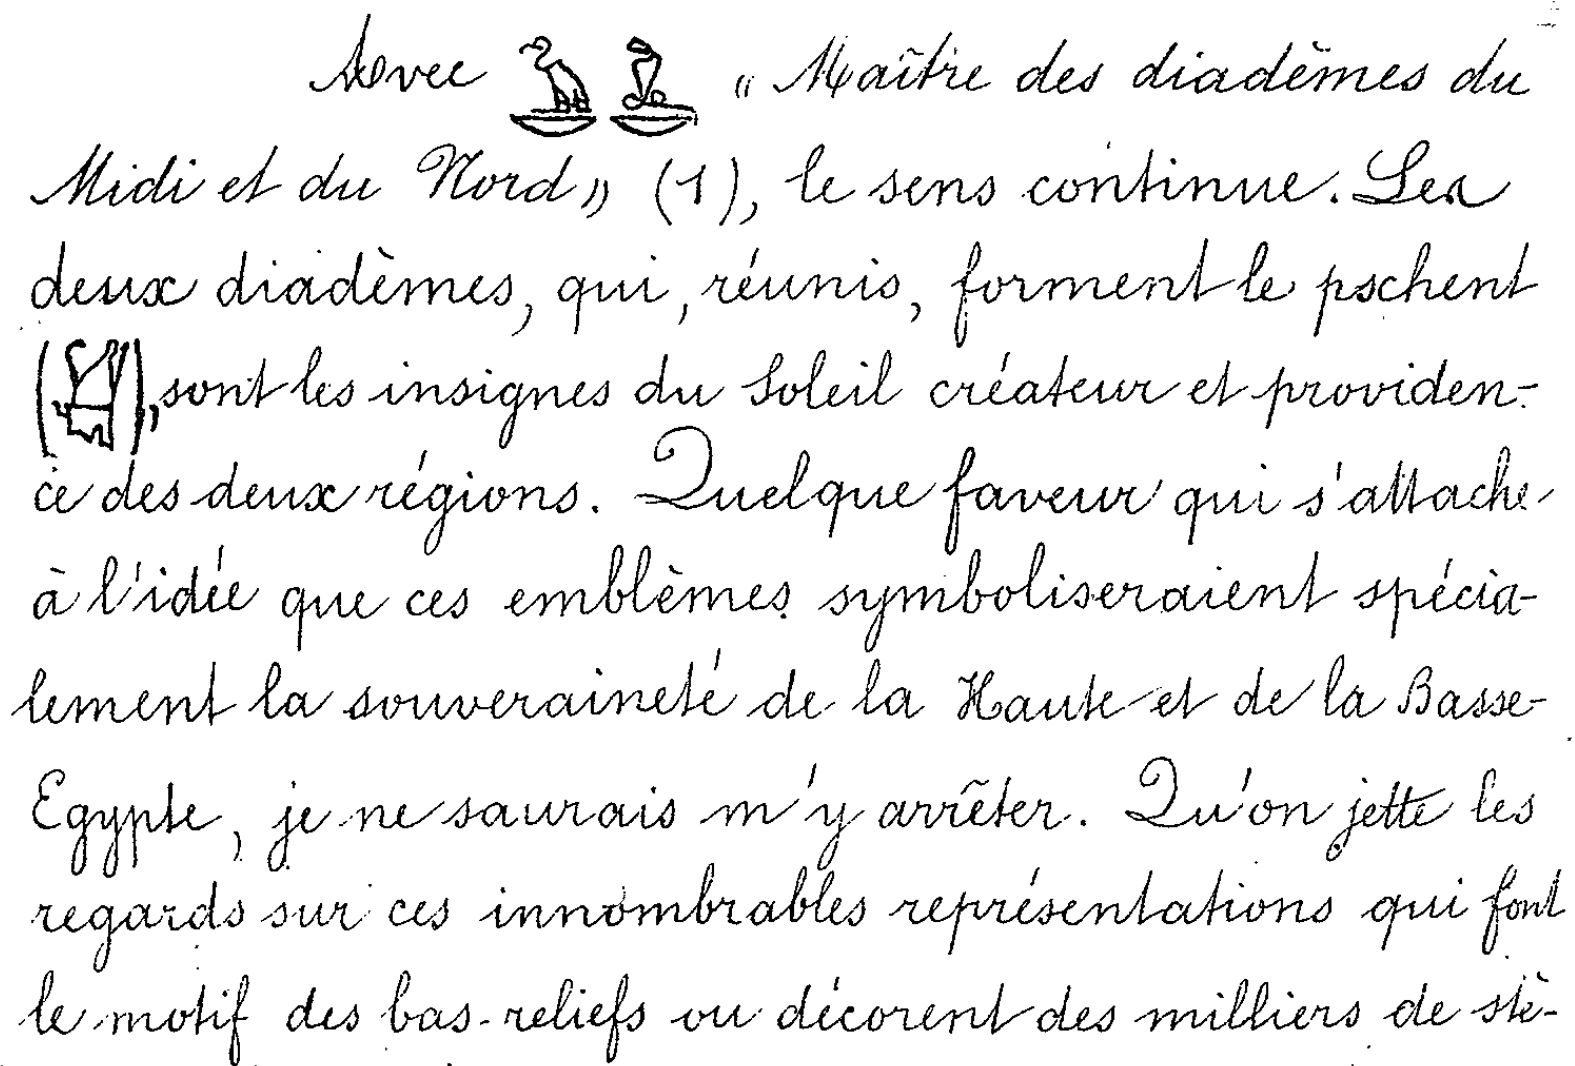 Avec 𓅒 𓆗 « Maître des diadèmes du
Midi et du Nord » (1), le sens continue. Les
deux diadèmes, qui, réunis, forment le pschent
(𓋖), sont les insignes du Soleil créateur et providen-
ce des deux régions. Quelque faveur qui s'attache
à l'idée que ces emblèmes symboliseraient spécia-
lement la souveraineté de la Haute et de la Basse-
Egypte, je ne saurais m'y arrêter. Qu'on jette les
regards sur ces innombrables représentations qui font
le motif des bas-reliefs ou décorent des milliers de stè-